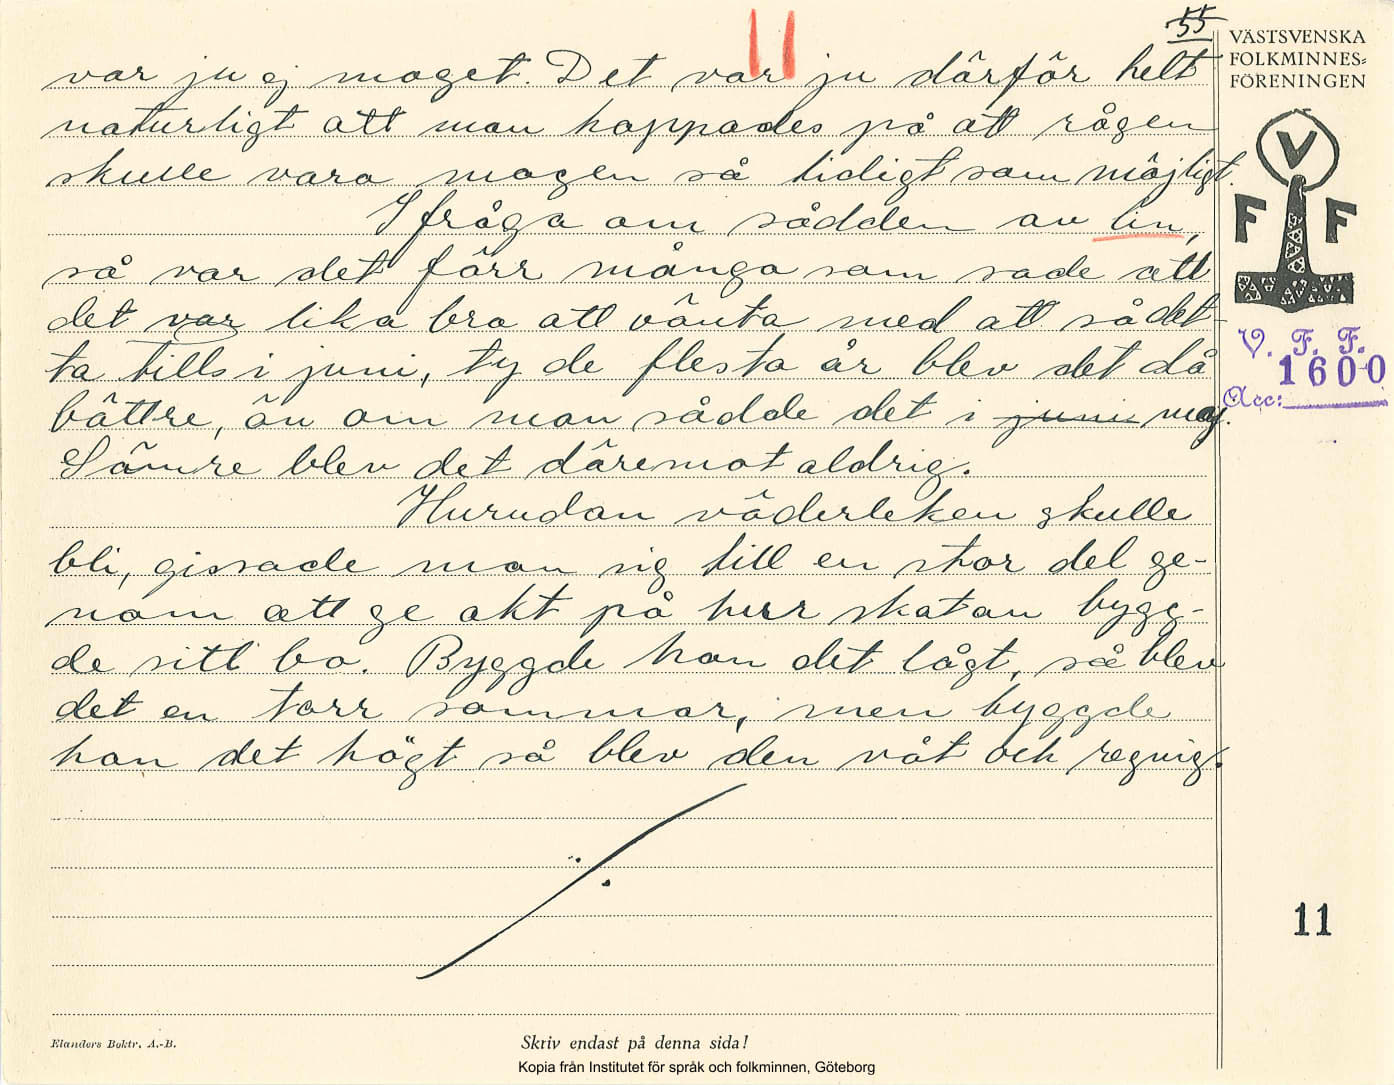 55
VÄSTSVENSKA
FOLKMINNES=
FÖRENINGEN
11
var ju ej moget. Det var ju därför helt
naturligt att man hoppades på att rågen
skulle vara mogen så tidigt som möjligt.
I fråga om sådden av lin,
så var det förr många som sade att
det var lika bra att vänta med att så det-
ta tills i juni, ty de flesta år blev det då
bättre, än om man sådde det i juni maj.
Sämre blev det däremot aldrig.
Hurudan väderleken skulle
bli, gissade man sig till en stor del ge-
nom att ge akt på hur skatan bygg-
de sitt bo. Byggde han det lågt, så blev
det en torr sommar, men byggde
han det högt så blev den våt och regnig.
V
F F
V. F. F.
1600
Acc:
11
Elanders Boktr. A.-B.
Skriv endast på denna sida!
Kopia från Institutet för språk och folkminnen, Göteborg